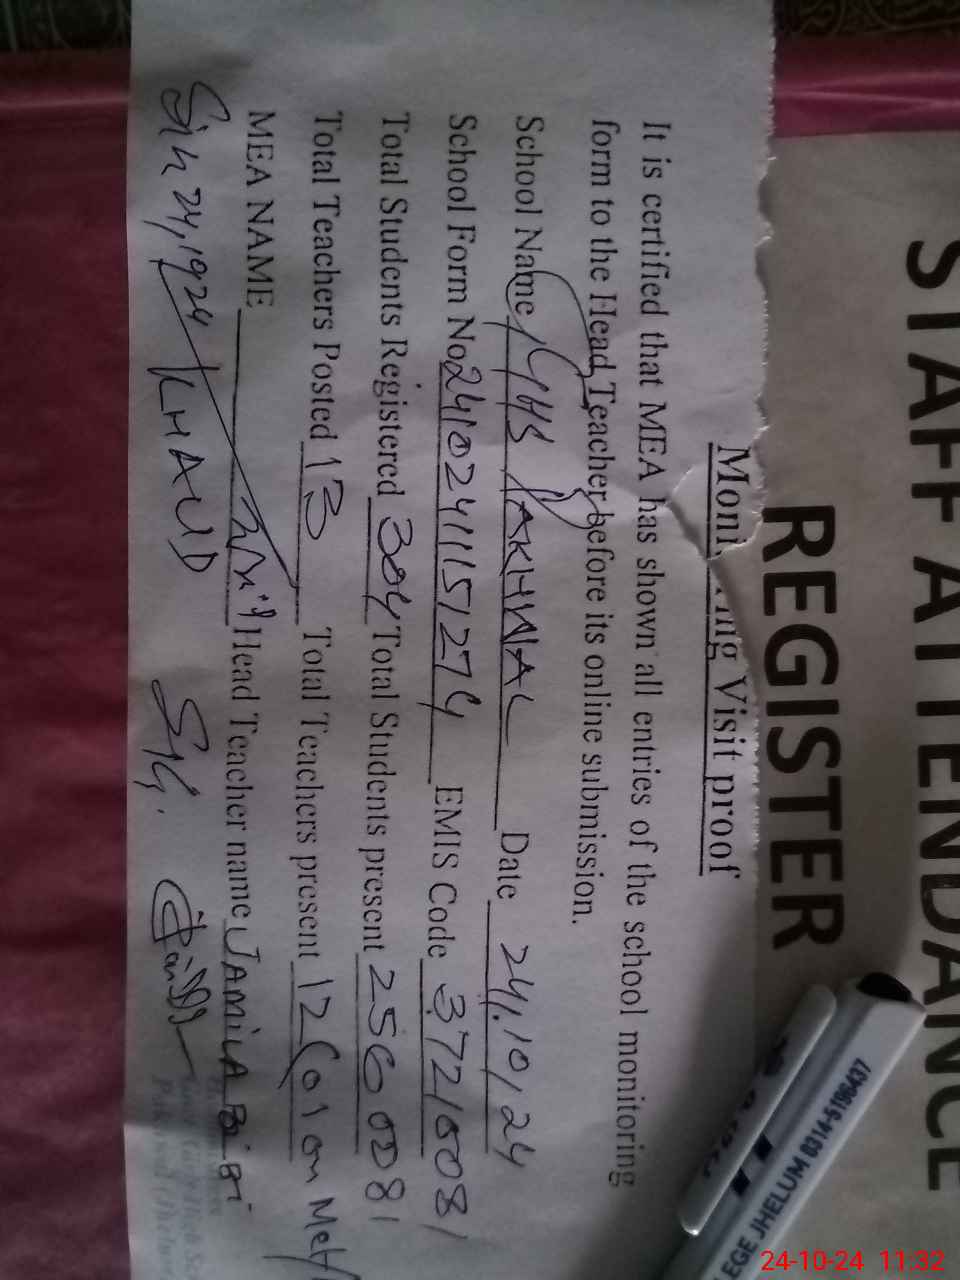 STAFF ATTENDANCE
REGISTER
Visit proof
It is certified that MEA has shown all entries of the school monitoring
form to the Head Teacher before its online submission.
School Name GHS Date 24.10.24
School Form No 24102411151274 EMIS Code 37210081
Total Students Registered 304 Total Students present 256
Total Teachers Posted 13 Total Teachers present 12 (01 on
MEA NAME Head Teacher name JAMILA BiBi
KHAUD
EGE JHELUM 0314-5196437
24-10-24 11:32